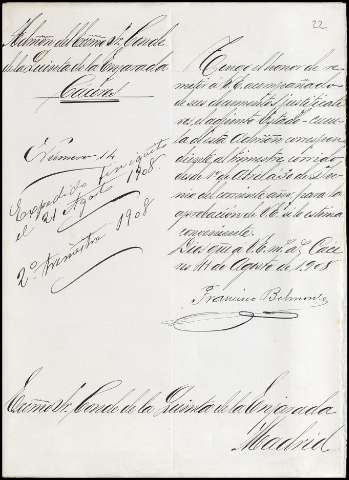 22
Admón del Excmo Sr. Conde
de la Quinta de la Enjarada
Cáceres
Número 14
Expedido finiquito
el 21 Agosto 1908.
2º trimestre 1908
Tengo el honor de re-
mitir a V.E. acompañado
de sus documentos justificati-
vos, el adjunto Estado-cuen-
ta de esta Admón correspon-
diente al trimestre corrido
desde 1º de Abril a 30 de Ju-
nio del corriente año para la
aprobación de V.E. si lo estima
conveniente.
Dios gue a V.E. m. a. Cáce-
res 11 de Agosto de 1908
Francisco Belmonte
Excmo Sr. Conde de la Quinta de la Enjarada
Madrid